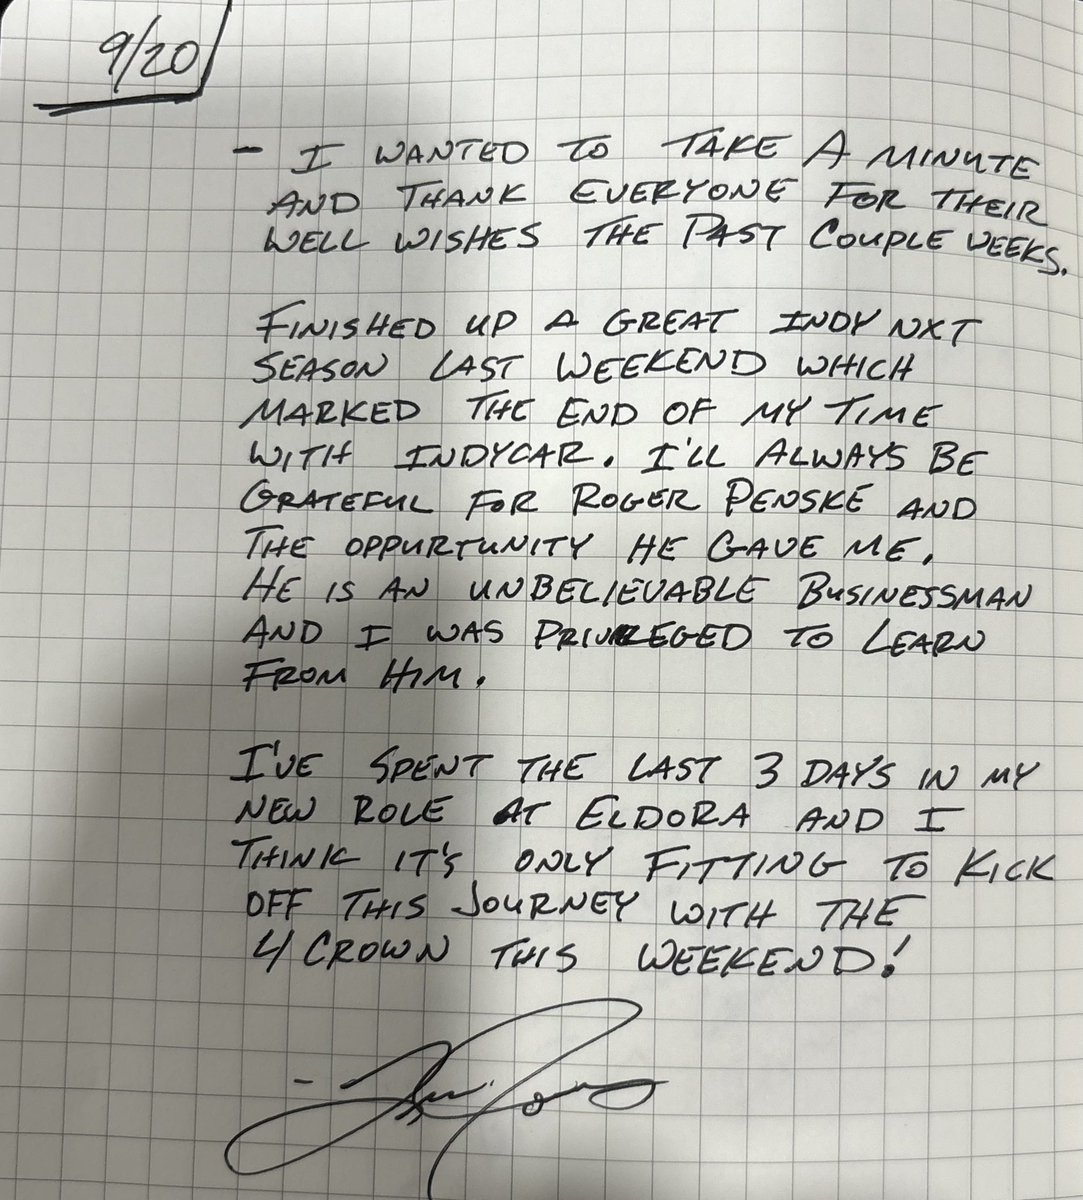 9/20
- I WANTED TO TAKE A MINUTE
AND THANK EVERYONE FOR THEIR
WELL WISHES THE PAST COUPLE WEEKS.
FINISHED UP A GREAT INDY NXT
SEASON LAST WEEKEND WHICH
MARKED THE END OF MY TIME
WITH INDYCAR. I'LL ALWAYS BE
GRATEFUL FOR ROGER PENSKE AND
THE OPPURTUNITY HE GAVE ME.
HE IS AN UNBELIEVABLE BUSINESSMAN
AND I WAS PRIVILEGED TO LEARN
FROM HIM.
I'VE SPENT THE LAST 3 DAYS IN MY
NEW ROLE AT ELDORA AND I
THINK IT'S ONLY FITTING TO KICK
OFF THIS JOURNEY WITH THE
4 CROWN THIS WEEKEND!